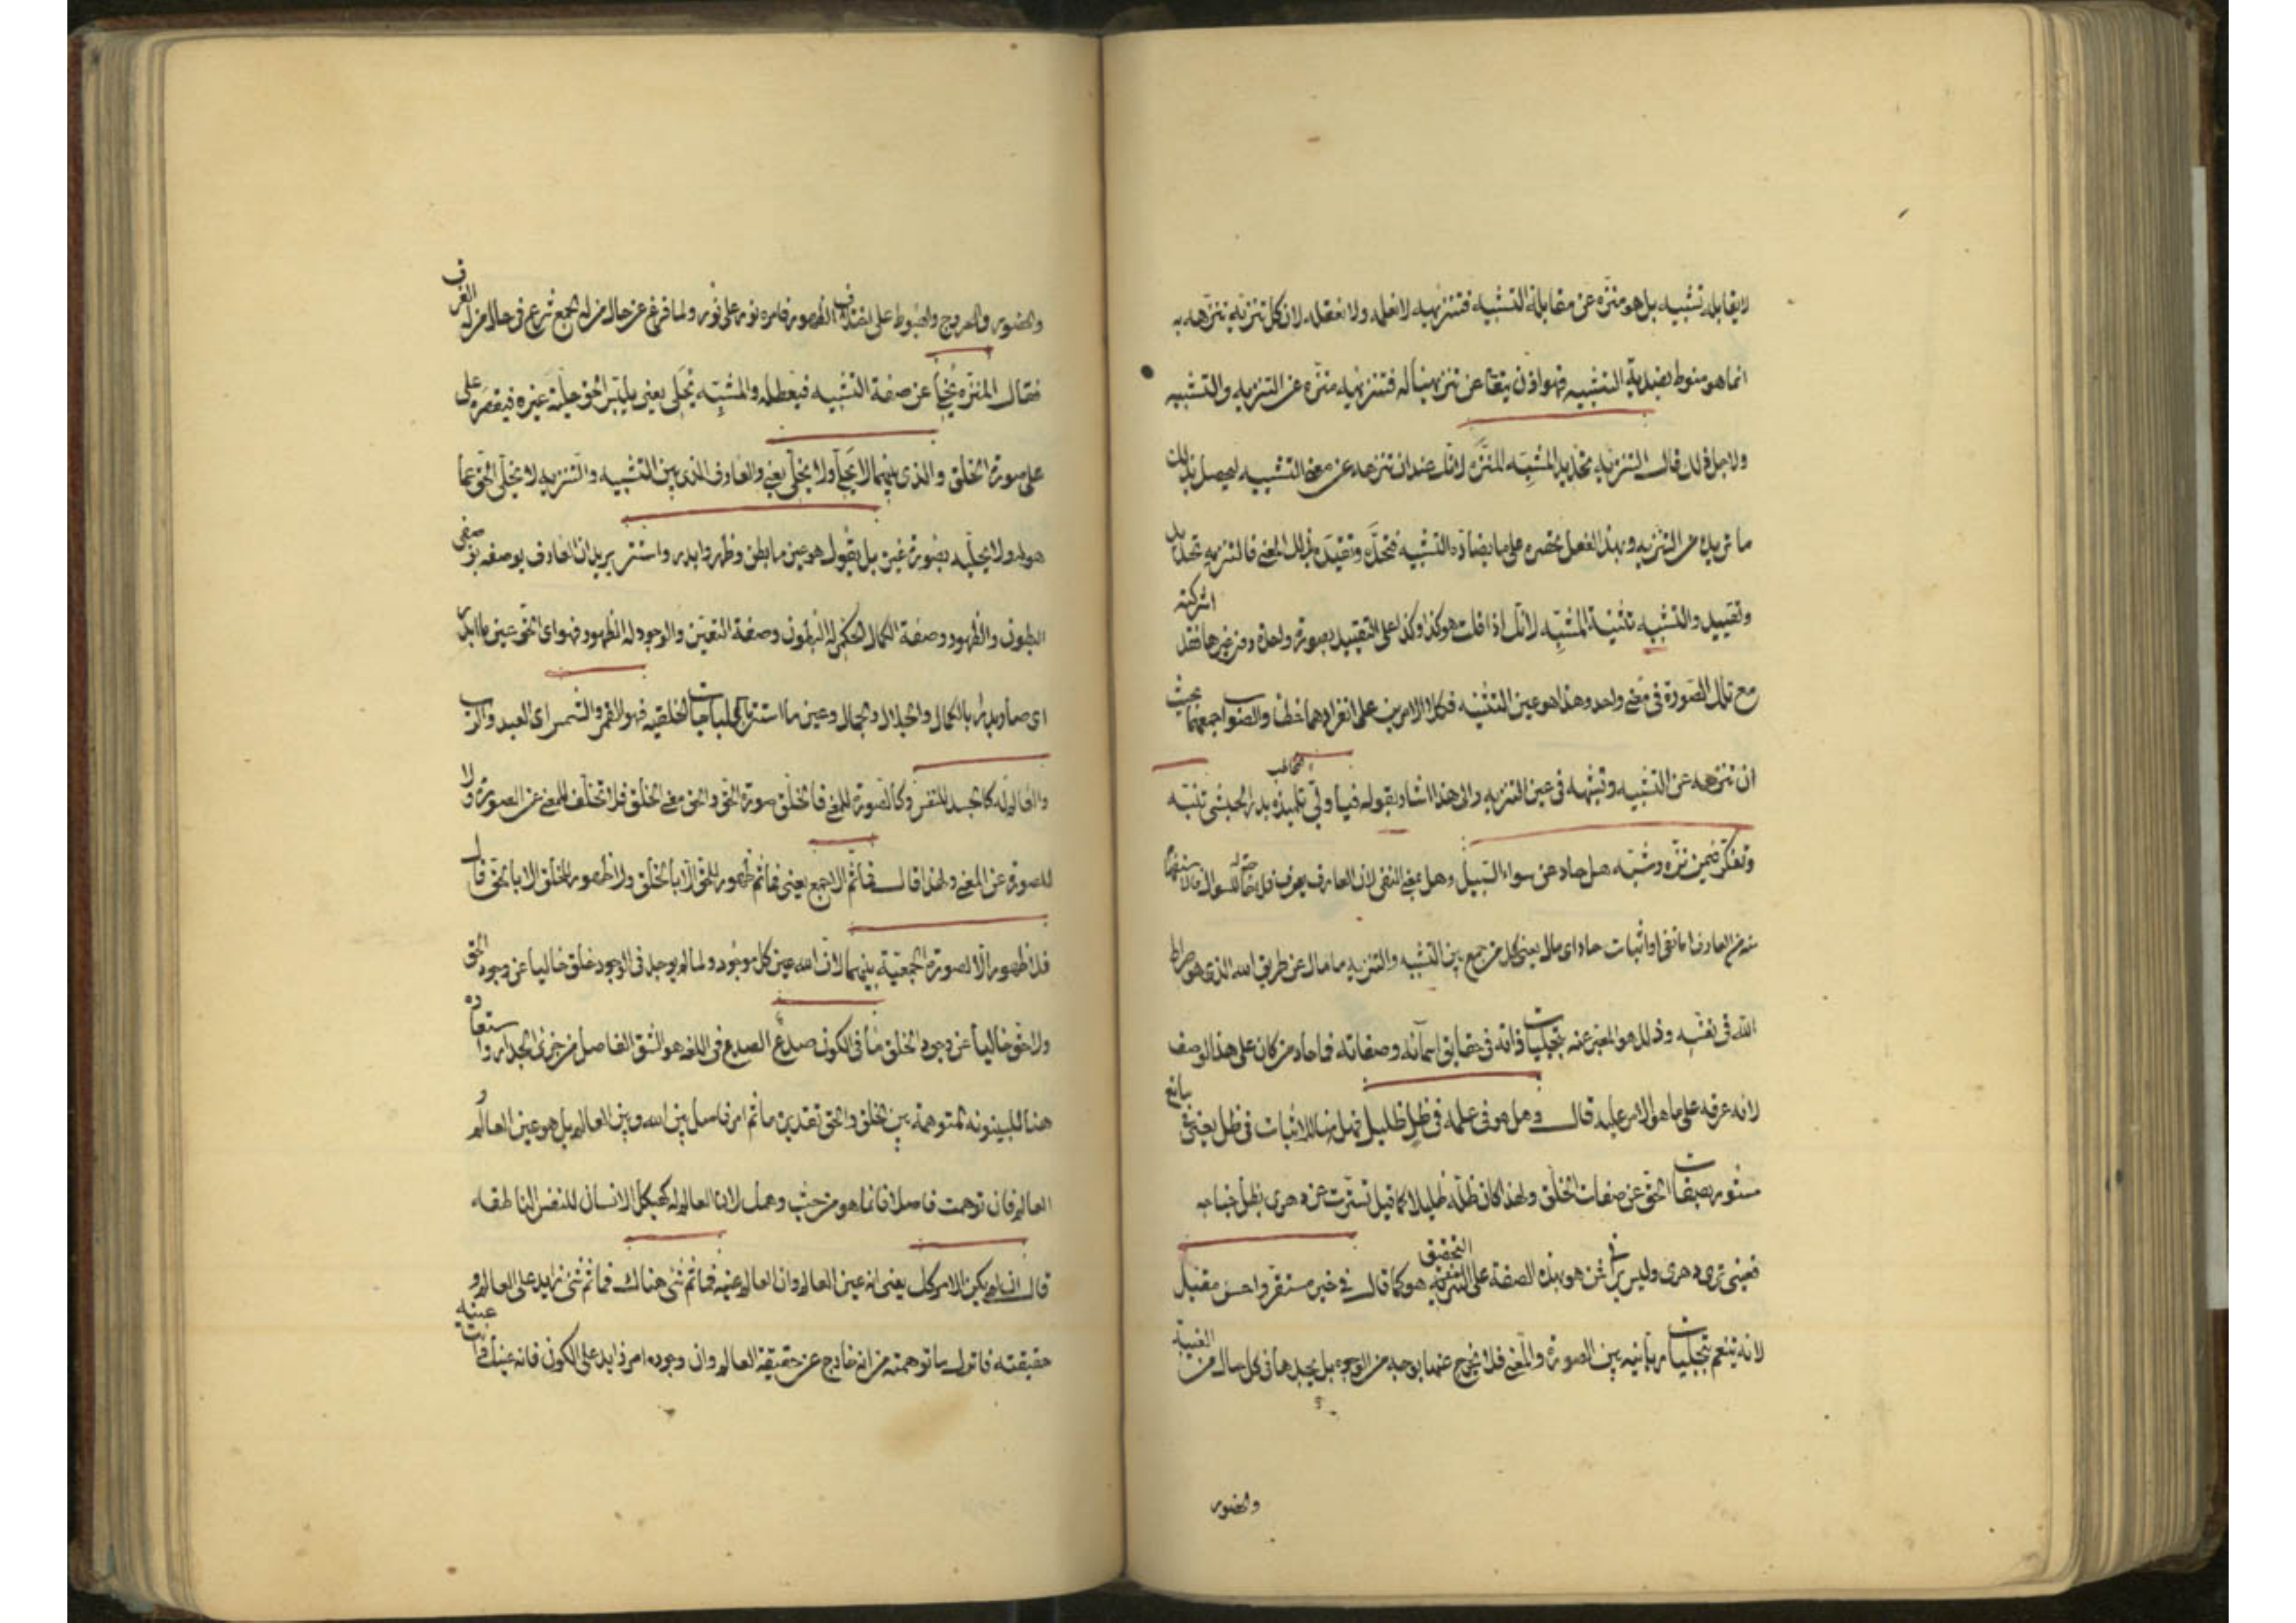 لا يقابله تشبيه بل هو منزه عن مقابلة التشبيه فتنزيهه لا نعلمه ولا نعقله لان كل تنزيه تنزهه به
انما هو منوط بضدية التشبيه فهو اذن يتعالى عن تنزيهنا له فتنزيهه منزه عن التنزيه والتشبيه
ولاجل ذلك قال التنزيه تحديد المنزه لانك عند ان تنزهه عن معنى التشبيه ليحصل بذلك
ما تريده من التنزيه وبهذا الفعل تحصره على ما يضاده التشبيه فتحده وتقيده بذلك المعنى فالتنزيه تحديد
وتقييد والتشبيه تثنية المشبه لانك اذا قلت هو كذا وكذا على التقييد بصورة واحدة دون غيرها فقد اشركته
مع تلك الصورة في معنى واحد وهذا هو عين التثنيه فكلا الامرين على انفرادهما خطأ والصواب جمعهما بحيث
ان تنزهه عن التشبيه وتشبهه في عين التنزيه والى هذا اشار بقوله فيا وليي تلميذه بدر الحبشي تنبه
وتفكر فيمن نزه وشبه هل حاد عن سواء السبيل وهل بمعنى النفي لان العارف يعرف
من العارف اما نفي او اثبات حاد اي مال يعني كل من جمع بين التشبيه والتنزيه ما مال عن طريق الله الذي هو صراط
الله في نفسه وذلك هو المعبر عنه بتجليات ذاته في حقايق اسمائه وصفاته فما حاد من كان على هذا الوصف
لانه عرفه على ما هو الامر عليه قال وهل هو في علمه في ظل ظليل فهل هنا للاثبات في ظل يعني
مستور بصفات الحق عن صفات الخلق ولهذا كان ظله ظليلا كما قيل تسترت عن دهري بظل جناحه
فعيني ترى دهري وليس يراني فمن هو بهذه الصفة على التحقيق هو كما قال في خير مستقر واحسن مقيل
لانه يتنعم بتجليات ربانيه بين الصورة والمعنى فلا يخرج عنهما بوجه من الوجوه بل يجدها في كل حال من الغيبة
والحضور
والحضور والعروج والهبوط على الظهور فامره نور على نور ولما فرغ عن حال منزله الجمع شرع في حال منزله الفرق
فقال المنزه يخلي عن صفة التشبيه فيعطله والمشبه يحلي يعني يلبس الحق حلية غيره فيقصره على
على صورة الخلق والذي بينهما لا يخلي ولا يحلي يعني والعارف الذي بين التشبيه والتنزيه لا يخلي الحق عما
هو له ولا يحليه بصورة غيره بل يقول هو عين ما بطن وظهر وابدر واستتر يريد ان العارف يوصفه بوصفي
البطون والظهور وصفة الكمال الحكم له البطون وصفة التعين والوجود له الظهور فهو اي الحق عين ما ابدر
اي صار بدرا بالكمال والجلال والجمال وعين ما استتر الخلقيه فهو القمر والشمس اي العبد والرب
والعالم له كالجسد للنفس وكالصورة للمعنى فالخلق صورة الحق والحق معنى الخلق فلا تخلف للمعنى عن الصورة ولا
للصورة عن المعنى ولهذا قال فما ثم الا جمع يعني فما ثم ظهور للحق الا بالخلق ولا ظهور للخلق الا بالحق قال
فلا ظهور الا لصورة الجمعية بينهما لان الله عين كل موجود ولما لم يوجد في الوجود خلق خاليا عن وجود الحق
ولا حق خاليا عن وجود الخلق ما في الكون صدع الصدع في اللغة هو الشق الفاصل من جزئى الجدار واستعاره
هنا للبينونه المتوهمة بين الخلق والحق تقديره ما ثم امر فاصل بين الله وبين العالم بل هو عين العالم و
العالم فان توهمت فاصلا فانما هو من حيث وهمك لان العالم له كهيكل الانسان للنفس الناطقه
قال ان لم يكن الامر كل يعني انه عين العالم وان العالم عينه فما ثم شئ هناك فما ثم شئ زايد على العالم و
حقيقته فاترك ما توهمته من انه خارج عن حقيقة العالم وان وجوده امر زايد على الكون فانه عينك